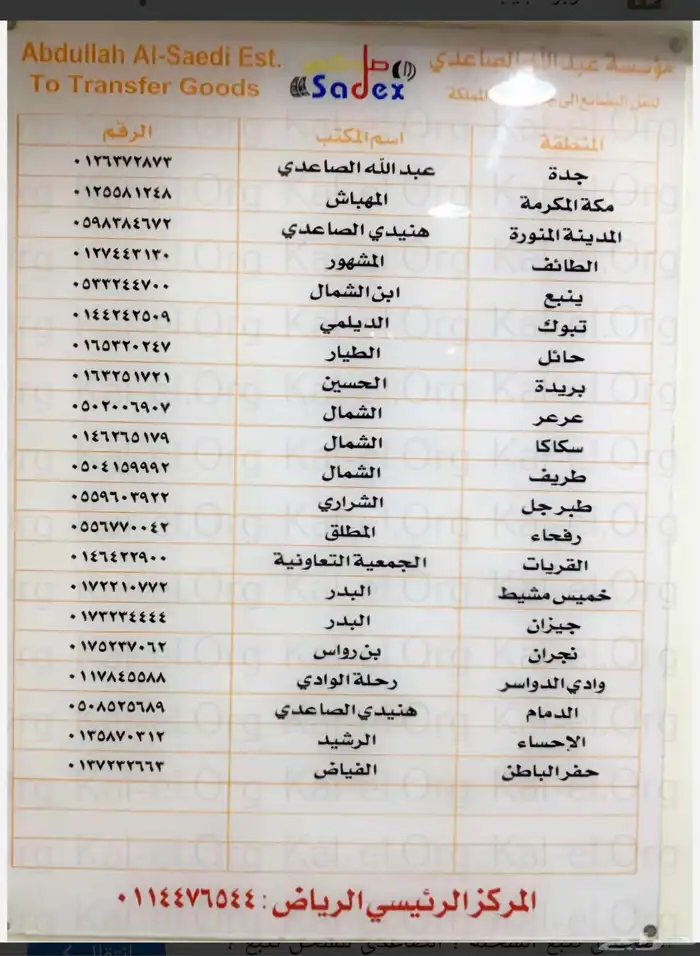 مؤسسة عبد الله الصاعدي
لنقل البضائع إلى المملكة
صادكس
Sadex
Abdullah Al-Saedi Est.
To Transfer Goods
المنطقة اسم المكتب الرقم
جدة عبد الله الصاعدي ٠١٢٦٣٧٢٨٧٣
مكة المكرمة المهباش ٠١٢٥٥٨١٢٤٨
المدينة المنورة هنيدي الصاعدي ٠٥٩٨٣٨٤٦٧٢
الطائف المشهور ٠١٢٧٤٤٣١٣٠
ينبع ابن الشمال ٠٥٣٣٢٤٤٧٠٠
تبوك الديلمي ٠١٤٤٢٤٢٥٠٩
حائل الطيار ٠١٦٥٣٢٠٢٤٧
بريدة الحسين ٠١٦٣٢٥١٧٢١
عرعر الشمال ٠٥٠٢٠٠٦٩٠٧
سكاكا الشمال ٠١٤٦٢٦٥١٧٩
طريف الشمال ٠٥٠٤١٥٩٩٩٢
طبرجل الشراري ٠٥٥٩٦٠٣٩٢٢
رفحاء المطلق ٠٥٥٦٧٧٠٠٤٢
القريات الجمعية التعاونية ٠١٤٦٤٢٢٩٠٠
خميس مشيط البدر ٠١٧٢٢١٠٧٧٢
جيزان البدر ٠١٧٣٢٣٤٤٤٤
نجران بن رواس ٠١٧٥٢٣٧٠٦٢
وادي الدواسر رحلة الوادي ٠١١٧٨٤٥٥٨٨
الدمام هنيدي الصاعدي ٠٥٠٨٥٢٥٦٨٩
الإحساء الرشيد ٠١٣٥٨٧٠٣١٢
حفر الباطن الفياض ٠١٣٧٢٣٢٦٦٣
المركز الرئيسي الرياض : ٠١١٤٤٧٦٥٤٤
Kal-el.Org